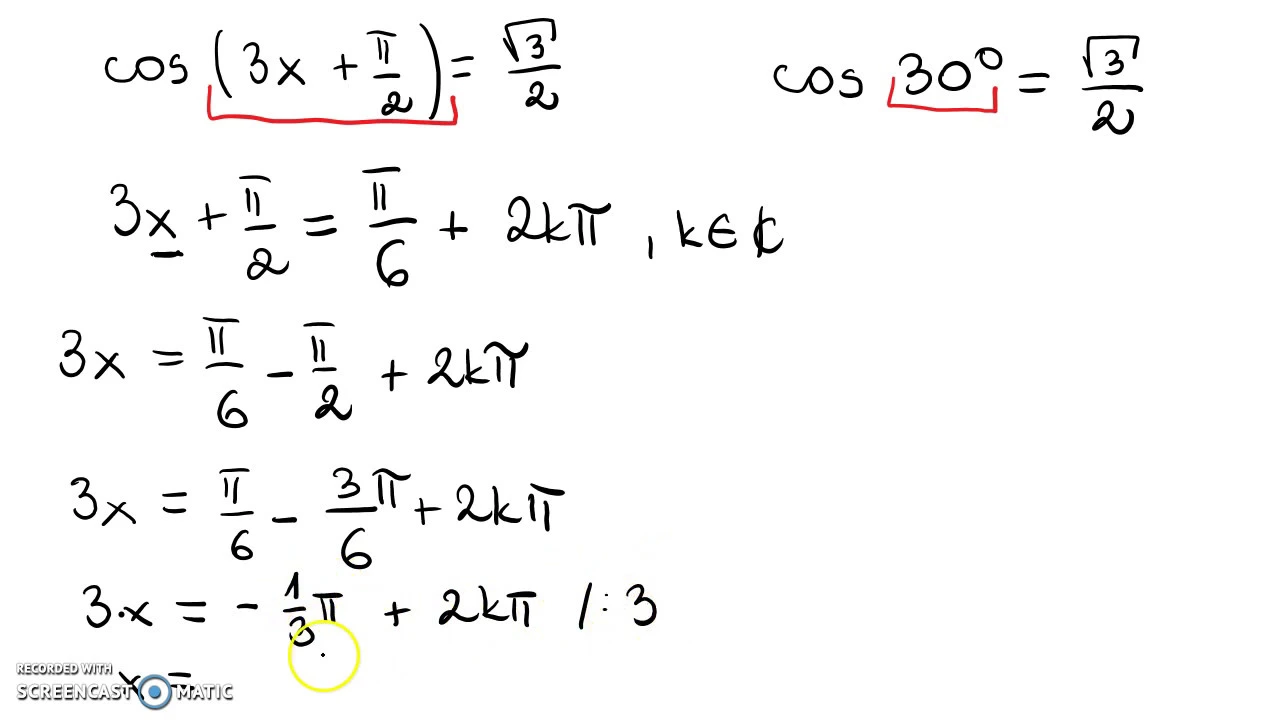 cos (3x + π/2) = √3/2
cos 30° = √3/2
3x + π/2 = π/6 + 2kπ , k ∈ ℂ
3x = π/6 - π/2 + 2kπ
3x = π/6 - 3π/6 + 2kπ
3·x = - 1/3 π + 2kπ /: 3
x =
RECORDED WITH
SCREENCAST MATIC